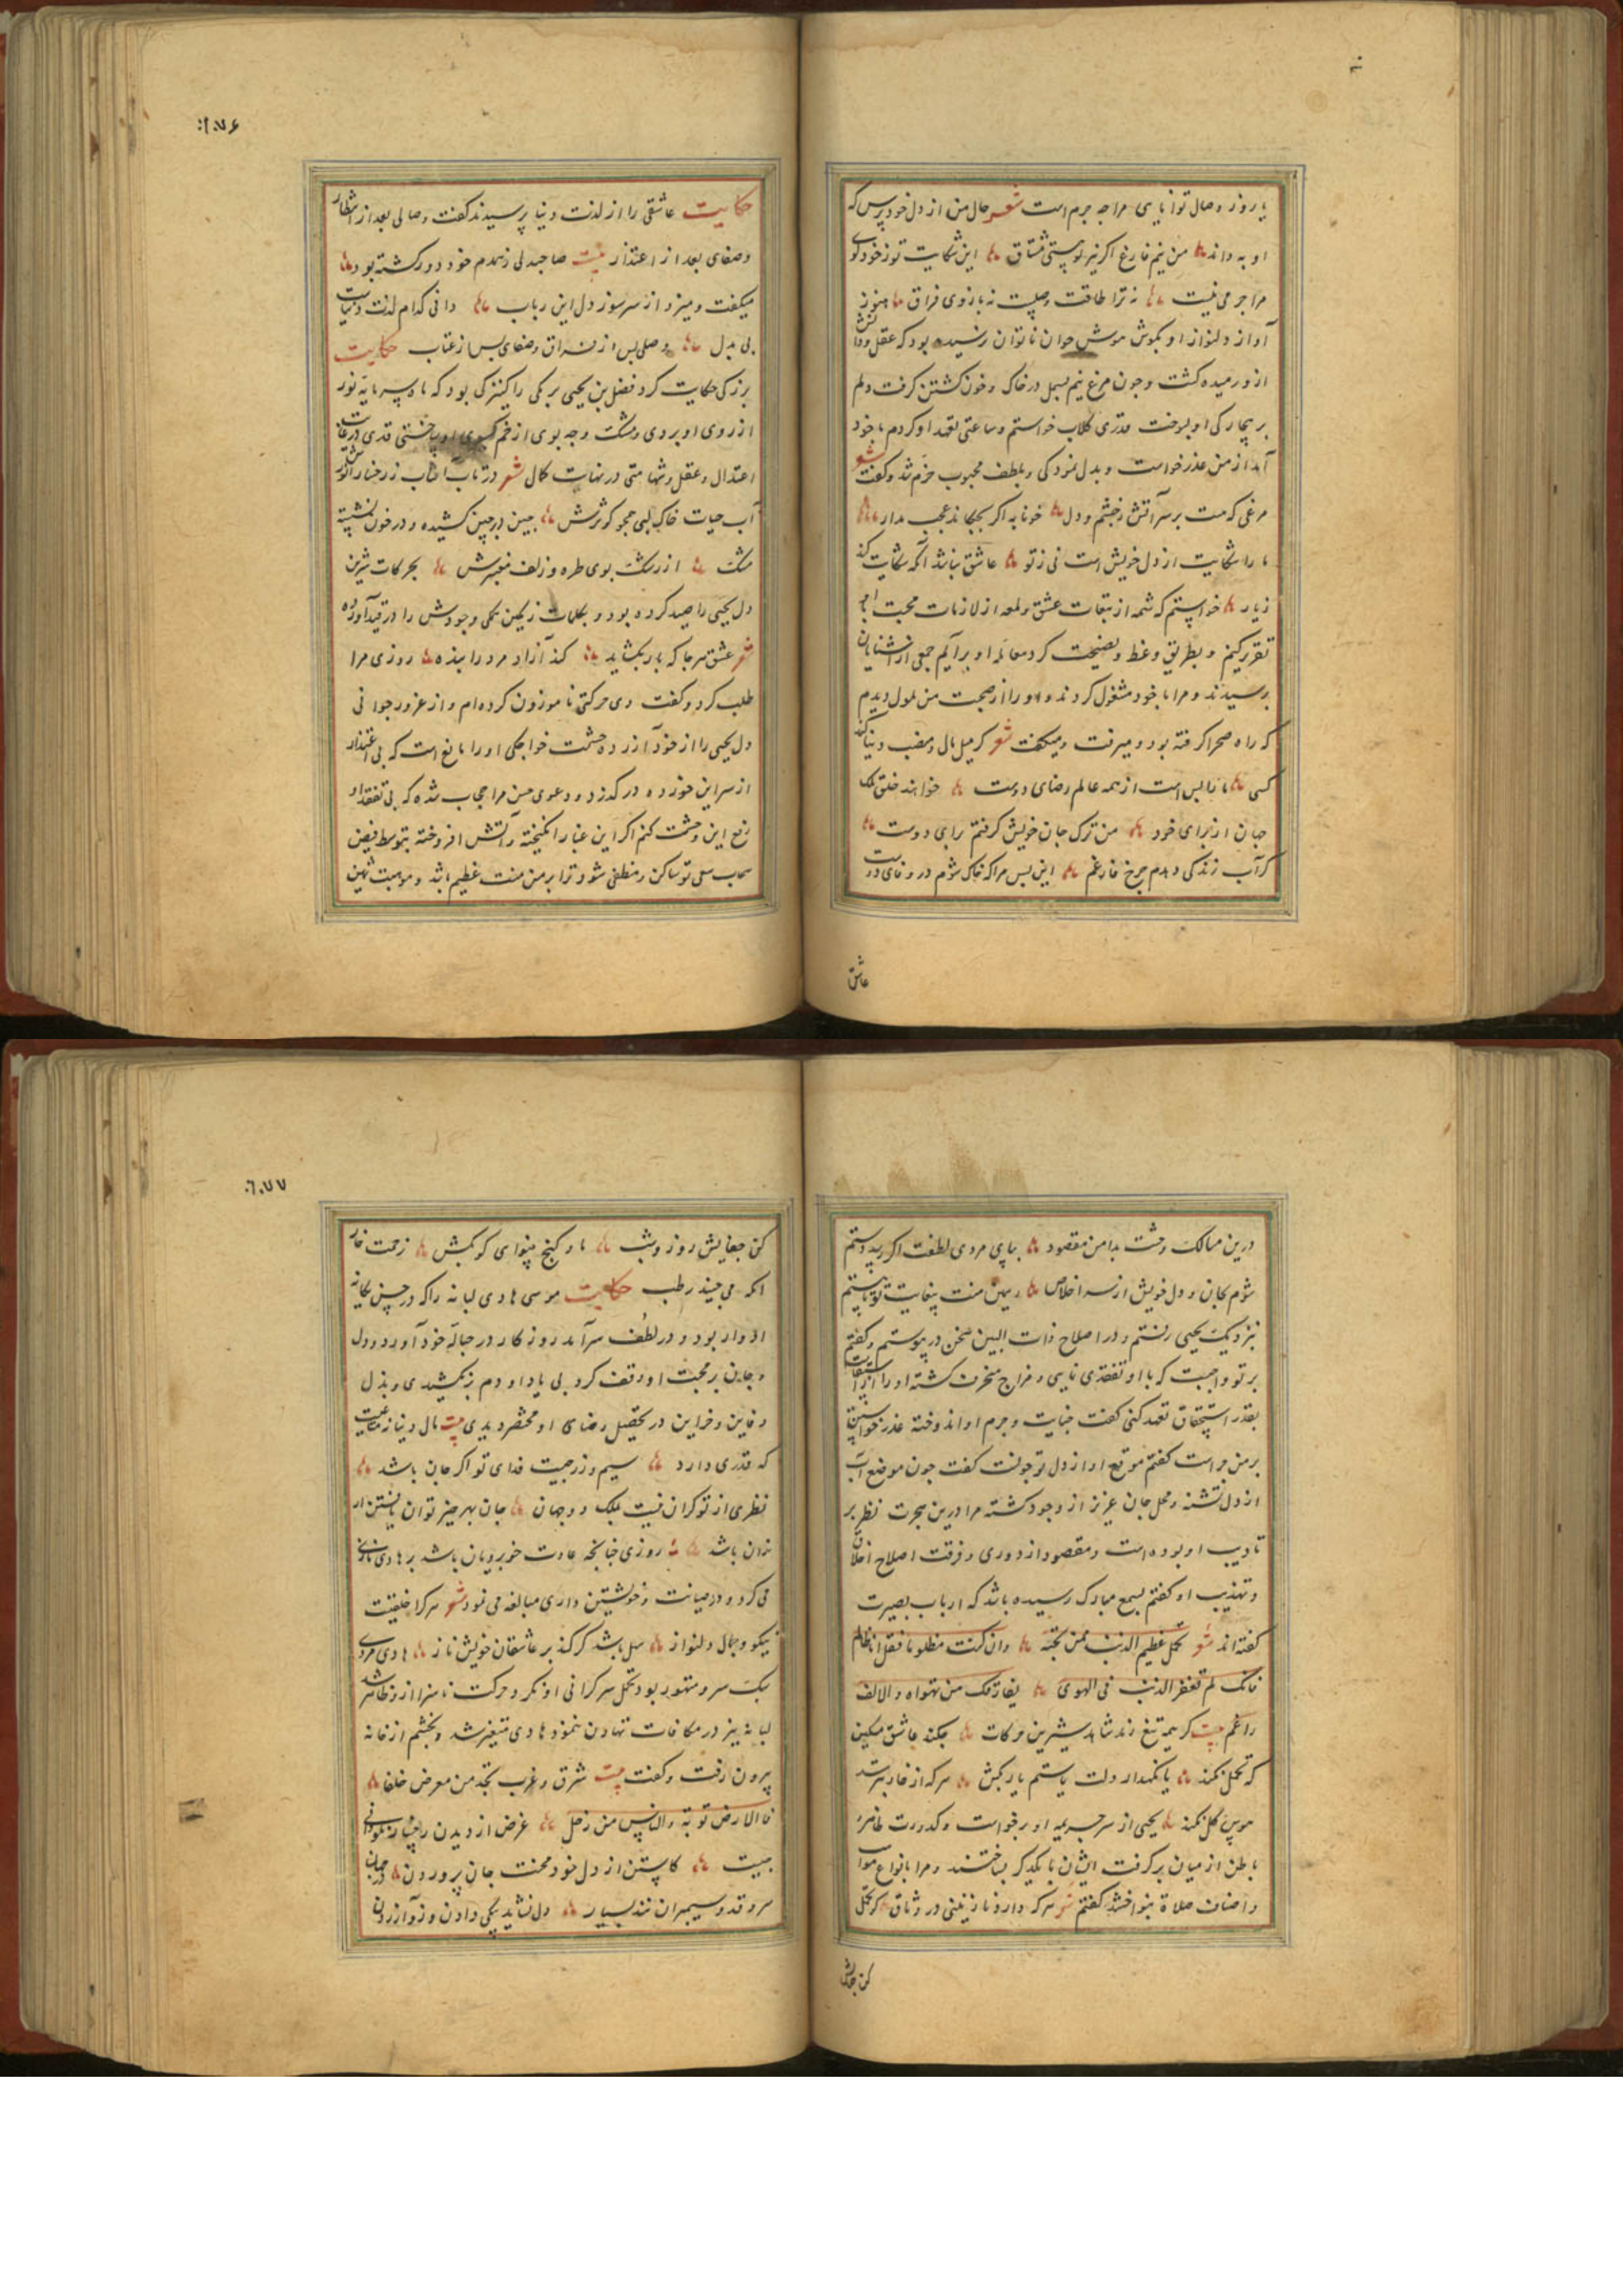 یا روز وصال توانایی مرا چه جرم است شعر حال من از دل خود پرس که
او به داند من نیم فارغ اگر نیز تو هستی مشتاق این شکایت تو ز خود کوی
مرا جرمی نیست نه ترا طاقت وصلست نه بازوی فراق هنوز
آواز دلنواز او بگوش هوش جوان ناتوان نرسیده بود که عقل و دانش
ازو رمیده گشت و چون مرغ نیم بسمل در خاک و خون گشتن گرفت دلم
بر بیچارگی او بسوخت قدری گلاب خواستم و ساعتی تعهد او کردم با خود
آمد از من عذر خواست و بدل نمودگی و بلطف محبوب خرم شد و گفت شعر
مرغی که هست بر سر آتش ز چشم و دل خونابه اگر بچکاند عجب مدار
ما را شکایت از دل خویش است نی ز تو عاشق نباشد آنکه شکایت کند
ز یار خواستم که شمه از تبعات عشق و لمعه از لازمات محبت با او
تقریر کنم و بطریق وعظ و نصیحت گرد معامله او برآیم جمعی از آشنایان
برسیدند و مرا با خود مشغول کردند و او را از صحبت من ملول دیدم
که راه صحرا گرفته بود و میرفت و میگفت شعر گر میل مال و منصب دنیا کند
کسی ما را بس است از همه عالم رضای دوست خواهند خلق ملک
جهان از برای خود من ترک جان خویش گرفتم برای دوست
گر آب زندگی دهدم چرخ فارغم این بس مرا که خاک شوم در وفای دوست
عاشق
۱۰۷۶
حکایت عاشقی را از لذت دنیا پرسیدند گفت وصالی بعد از انتظار
وصفای بعد از اعتذار بیت صاحبدلی ز همدم خود دور گشته بود
میگفت و میزد از سر سوز دل این رباب دانی کدام لذت دنیاست
بی بدل وصلی پس از فراق وصفای پس از عتاب حکایت
بزرگی حکایت کرد فضل بن یحیی برمکی را کنیزکی بود که ماه سرمایه نور
از روی او بردی و مشک وجه بوی از خم گیسوی او ساختی قدی در غایت
اعتدال و عقل و شهامتی در نهایت کمال شعر در تاب آفتاب ز رخسار انورش
آب حیات خاک لبی همچو کوثرش چین در چین کشیده و در خون نشسته
مشک از رشک بوی طره و زلف معنبرش بحرکات شیرین
دل یحیی را صید کرده بود و بکلمات رنگین همگی وجودش را در قید آورده
شعر عشق هر جا که بار بگشاید کند آزاد مرد را بنده روزی مرا
طلب کرد و گفت دی حرکتی ناموزون کرده‌ام و از غرور جوانی
دل یحیی را از خود آزرده حشمت خواجگی او را مانع است که بی اعتذار
از سر این خورده در گذرد و دعوی حسن مرا حجاب شده که بی تفقد او
رفع این وحشت کنم اگر این غبار انگیخته و آتش افروخته بتوسط فیض
سحاب سعی تو ساکن و منطفی شود ترا بر من منت عظیم باشد و موهبت ثمین
درین مسالک وحشت بدامن مقصود بپای مردی لطفت اگر رسد دستم
شوم بجان و دل خویش از سر اخلاص رهین منت بیغایت تو تا هستم
نزدیک یحیی رفتم و در اصلاح ذات البین سخن در پیوستم و گفتم
بر تو واجبست که با او تفقدی نمایی و مزاج منحرف گشته او را
بقدر استحقاق تعهد کنی گفت جنایت و جرم او اندوخته عذر خواستن
بر من چراست گفتم موقع او از دل تو چونست گفت چون موضع آب
از دل تشنه و محل جان عزیز از وجود گشته مرا درین هجرت نظر بر
تادیب او بوده است و مقصود از دوری و فرقت اصلاح اخلاق
و تهذیب او گفتم بسمع مبارک رسیده باشد که ارباب بصیرت
گفته اند شعر تحمل عظیم الذنب ممن تحبه وان کنت مظلوما فقل انا ظالم
فانک لم تغفر الذنب فی الهوی یفارقک من تهواه والانف
راغم بیت گر همه تیغ زند شاهد شیرین حرکات چکند عاشق مسکین
که تحمل نکند یا نگهدار دلت یا ستم یار بکش هر که از خار بترسد
هوس گل نکند یحیی از سر جریمه او برخواست و کدورت ظاهر و
باطن از میان برگرفت ایشان با یکدیگر بساختند و مرا بانواع مواهب
و اصناف صلاة بنواختند گفتم شعر هر که دارد نازنینی در وثاق گر تحمل
کن جفایش
۱۰۷۷
کن جفایش روز و شب یا در کنج بینوای گو بکش زحمت خار
آنکه می چیند رطب حکایت موسی هادی لبانه را که در حسن یگانه
ادوار بود و در لطف سرآمد روزگار در حباله خود آورد و دل
و جان بر محبت او وقف کرد بی یاد او دم نکشیدی و بذل
دفاین و خزاین در تحصیل رضای او مختصر دیدی بیت مال دنیا نه متاعیست
که قدری دارد سیم و زر چیست فدای تو اگر جان باشد
نظری از تو گران نیست بملک دو جهان جان بهر چیز توان یافتن ار
زان باشد روزی چنانچه عادت خوبرویان باشد بر هادی نازی
می کرد و در صیانت و خویشتن داری مبالغه می نمود شعر هر کرا خلقیست
نیکو و جمال دلنواز سهل باشد گر کند بر عاشقان خویش ناز هادی مردی
سبک سر و متهور بود تحمل سرگرانی او نکرد و حرکت ناسزا ازو ظاهر شد
لبانه نیز در مکافات تهاون ننمود هادی متغیر شد و بخشم از خانه
بیرون رفت و گفت بیت شرق و غرب تجد من معرض خلفا
فالارض تربة والناس من رجل غرض از دیدن رخسار نکو دانی
چیست کاستن از دل خود محنت جان پروردن در جهان
سرو قد و سیمبران نند بسیار دل نشاید بیکی دادن و زو آزردن